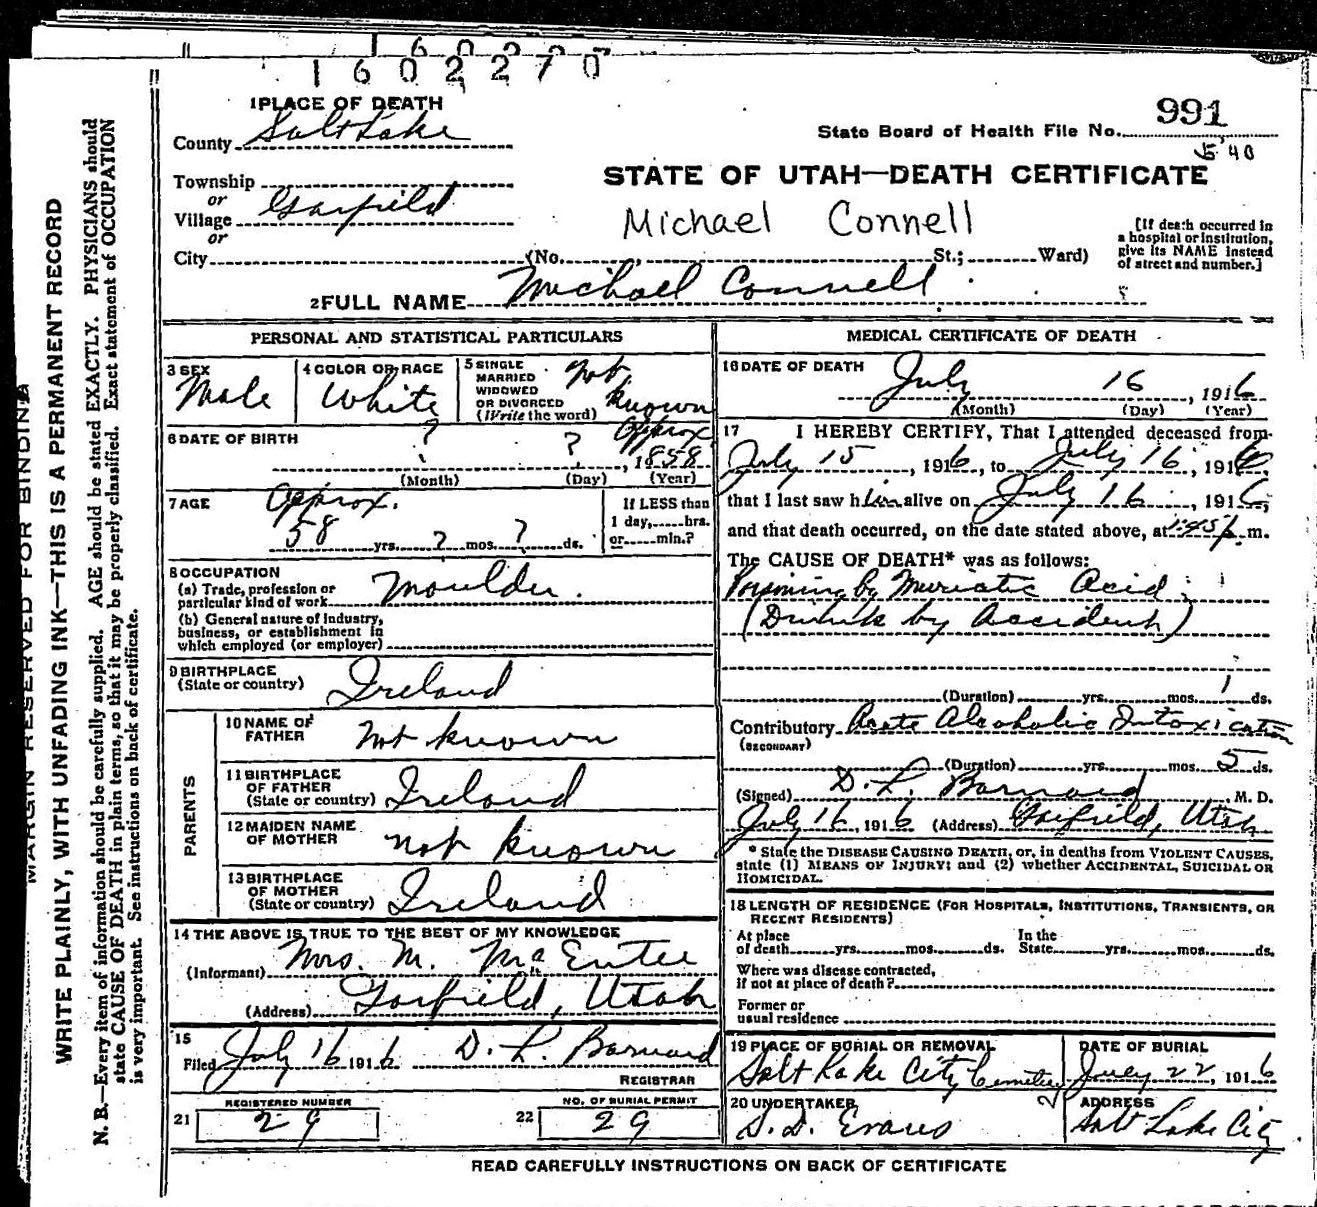 1602270
1 PLACE OF DEATH
County Salt Lake
State Board of Health File No. 991
Township
or
Village Garfield
or
City (No. St.; Ward)
STATE OF UTAH—DEATH CERTIFICATE
Michael Connell
[If death occurred in
a hospital or institution,
give its NAME instead
of street and number.]
2 FULL NAME Michael Connell
PERSONAL AND STATISTICAL PARTICULARS
3 SEX
Male
4 COLOR OR RACE
White
5 SINGLE
MARRIED
WIDOWED
OR DIVORCED
(Write the word)
Not
known
6 DATE OF BIRTH
? ? approx 1858
(Month) (Day) (Year)
7 AGE
approx.
58 yrs. ? mos. ? ds.
If LESS than
1 day, hrs.
or min.?
8 OCCUPATION
(a) Trade, profession or
particular kind of work Moulder.
(b) General nature of industry,
business, or establishment in
which employed (or employer)
9 BIRTHPLACE
(State or country) Ireland
PARENTS
10 NAME OF
FATHER Not known
11 BIRTHPLACE
OF FATHER
(State or country) Ireland
12 MAIDEN NAME
OF MOTHER not known
13 BIRTHPLACE
OF MOTHER
(State or country) Ireland
14 THE ABOVE IS TRUE TO THE BEST OF MY KNOWLEDGE
(Informant) Mrs. M. McEntee
(Address) Garfield, Utah
15
Filed July 16 1916 D. L. Barnard
REGISTRAR
REGISTERED NUMBER
21 29
NO. OF BURIAL PERMIT
22 29
MEDICAL CERTIFICATE OF DEATH
16 DATE OF DEATH
July 16, 1916
(Month) (Day) (Year)
17 I HEREBY CERTIFY, That I attended deceased from
July 15, 1916, to July 16, 1916,
that I last saw him alive on July 16, 1916,
and that death occurred, on the date stated above, at 1:45 p. m.
The CAUSE OF DEATH* was as follows:
Poisoning by Muriatic Acid
(Drink by Accident)
(Duration) yrs. mos. 1 ds.
Contributory Acute Alcoholic Intoxication
(SECONDARY)
(Duration) yrs. mos. 5 ds.
(Signed) D. L. Barnard M. D.
July 16, 1916 (Address) Garfield, Utah
* State the DISEASE CAUSING DEATH, or, in deaths from VIOLENT CAUSES,
state (1) MEANS OF INJURY; and (2) whether ACCIDENTAL, SUICIDAL OR
HOMICIDAL.
18 LENGTH OF RESIDENCE (FOR HOSPITALS, INSTITUTIONS, TRANSIENTS, OR
RECENT RESIDENTS)
At place
of death yrs. mos. ds.
In the
State yrs. mos. ds.
Where was disease contracted,
if not at place of death?
Former or
usual residence
19 PLACE OF BURIAL OR REMOVAL
Salt Lake City Cemetery
DATE OF BURIAL
July 22, 1916
20 UNDERTAKER
S. D. Evans
ADDRESS
Salt Lake City
READ CAREFULLY INSTRUCTIONS ON BACK OF CERTIFICATE
MARGIN RESERVED FOR BINDING
WRITE PLAINLY, WITH UNFADING INK—THIS IS A PERMANENT RECORD
N. B.—Every item of information should be carefully supplied. AGE should be stated EXACTLY. PHYSICIANS should
state CAUSE OF DEATH in plain terms, so that it may be properly classified. Exact statement of OCCUPATION
is very important. See instructions on back of certificate.